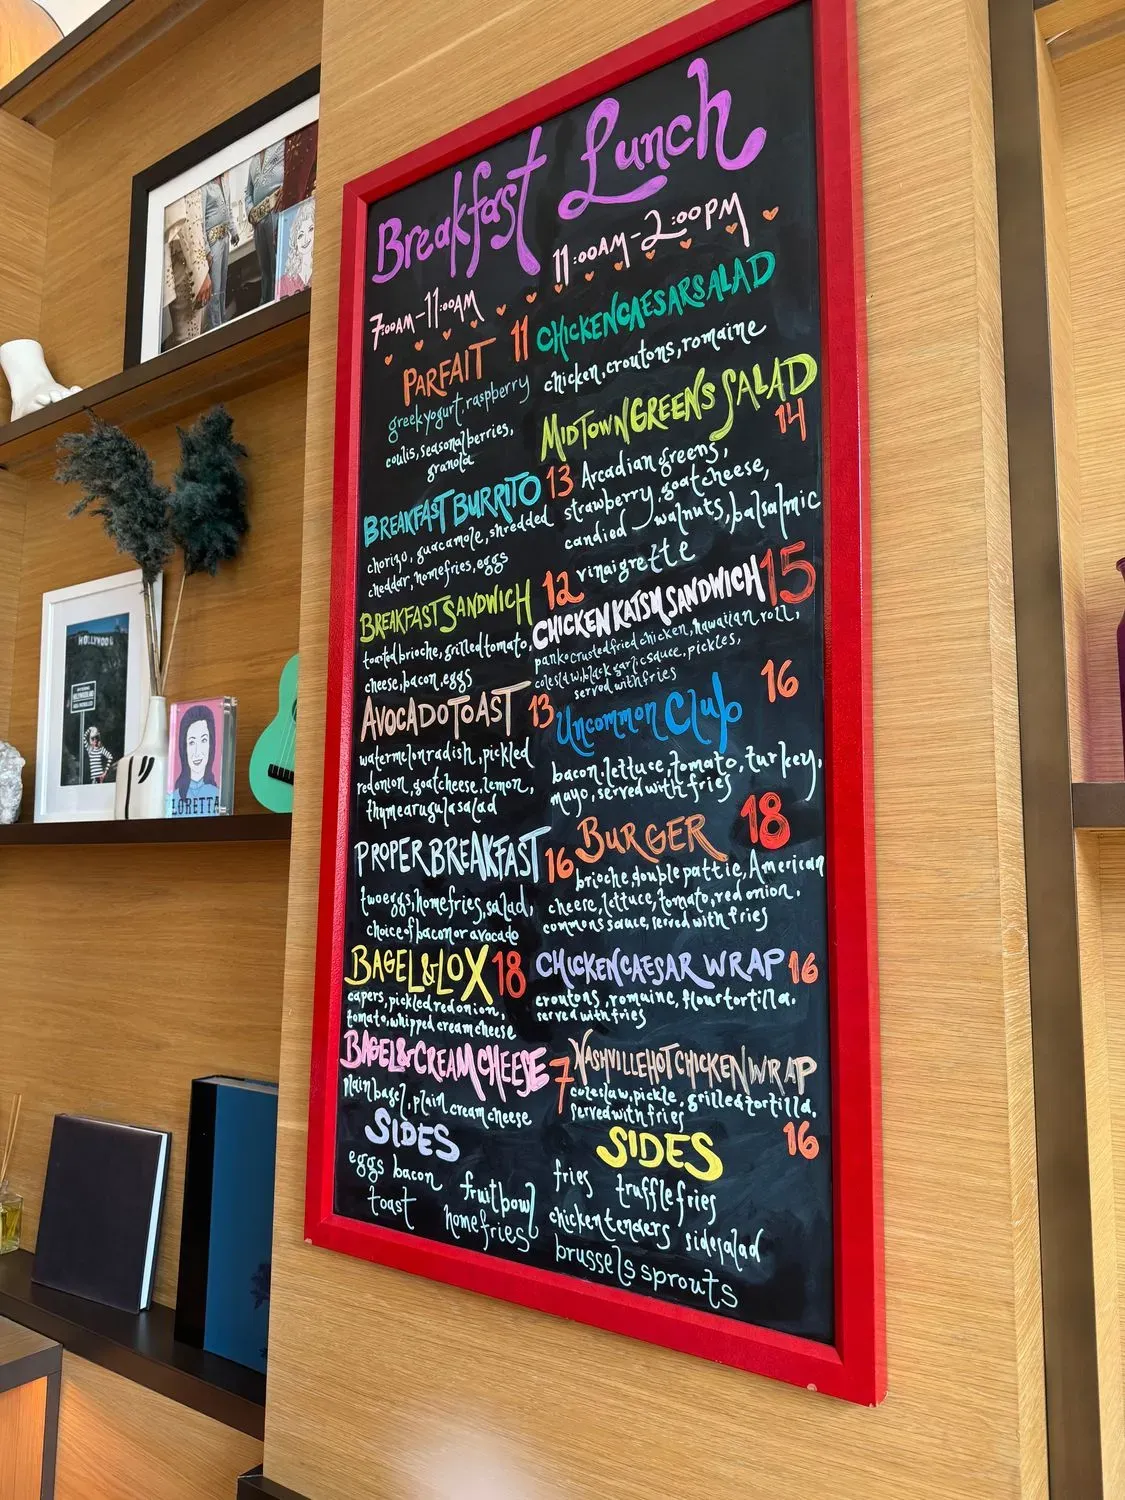 Breakfast
7:00AM-11:00AM
PARFAIT 11
greek yogurt, raspberry
coulis, seasonal berries,
granola
BREAKFAST BURRITO 13
chorizo, guacamole, shredded
cheddar, homefries, eggs
BREAKFAST SANDWICH 12
toasted brioche, grilled tomato,
cheese, bacon, eggs
AVOCADO TOAST 13
watermelon radish, pickled
red onion, goat cheese, lemon,
thyme arugula salad
PROPER BREAKFAST 16
two eggs, homefries, salad,
choice of bacon or avocado
BAGEL & LOX 18
capers, pickled red onion,
tomato, whipped cream cheese
BAGEL & CREAM CHEESE 7
plain bagel, plain cream cheese
SIDES
eggs bacon fruit bowl
toast homefries
Lunch
11:00AM-2:00PM
CHICKEN CAESAR SALAD
chicken, croutons, romaine
MIDTOWN GREENS SALAD
14
Arcadian greens,
strawberry, goat cheese,
candied walnuts, balsalmic
vinaigrette
CHICKEN KATSU SANDWICH 15
panko crusted fried chicken, hawaiian roll,
coleslaw, black garlic sauce, pickles,
served with fries
Uncommon Club 16
bacon, lettuce, tomato, turkey,
mayo, served with fries
BURGER 18
brioche, double pattie, American
cheese, lettuce, tomato, red onion,
commons sauce, served with fries
CHICKEN CAESAR WRAP 16
croutons, romaine, flour tortilla.
served with fries
NASHVILLE HOT CHICKEN WRAP
coleslaw, pickle, grilled tortilla.
served with fries
16
SIDES
fries truffle fries
chicken tenders side salad
brussels sprouts
HOLLYWOOD
LORETTA